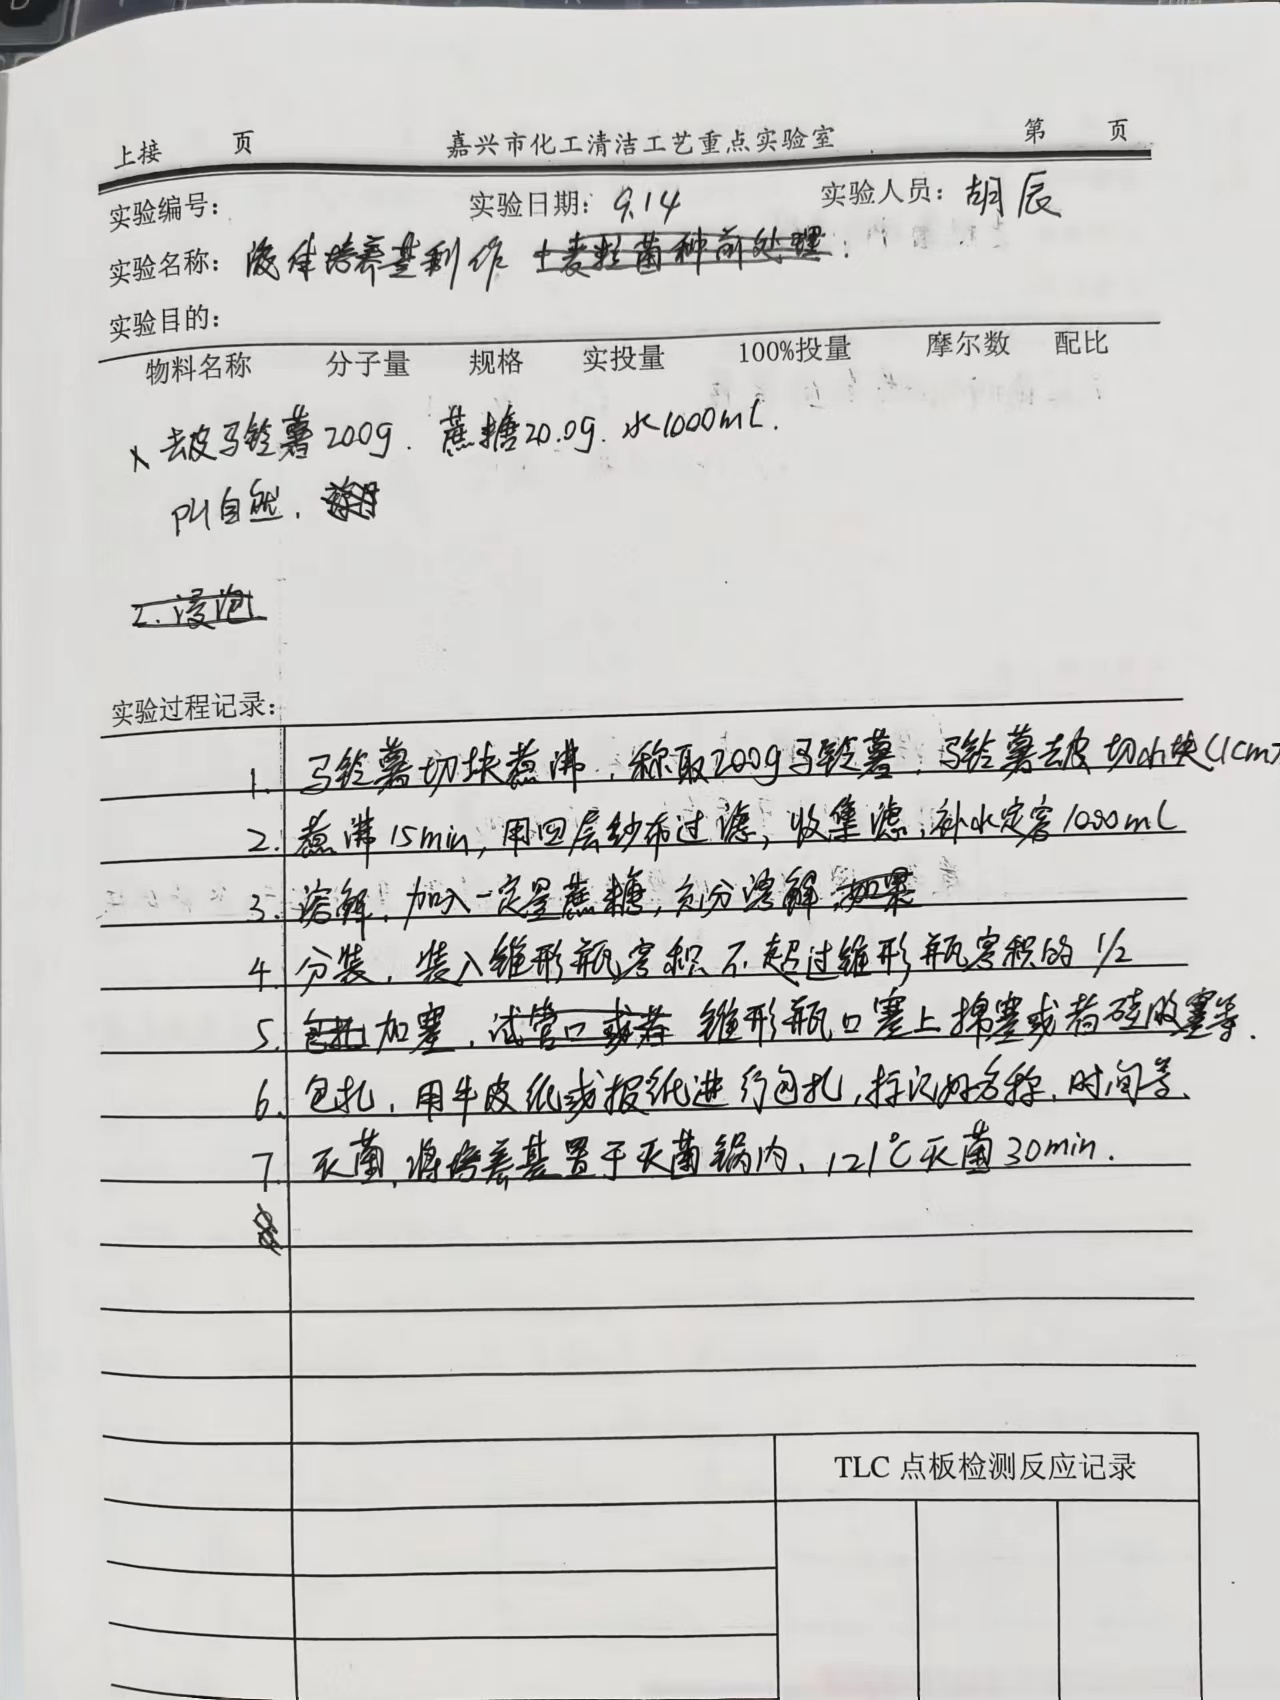 上接 页 嘉兴市化工清洁工艺重点实验室 第 页
实验编号： 实验日期：9.14 实验人员：胡辰
实验名称：液体培养基制作 土麦粒菌种前处理：
实验目的：
物料名称 分子量 规格 实投量 100%投量 摩尔数 配比
x 去皮马铃薯200g. 蔗糖20.0g. 水1000mL.
PH自然.
2. 浸泡
实验过程记录：
1. 马铃薯切块煮沸，称取200g马铃薯，马铃薯去皮切小块(1cm)
2. 煮沸15min，用四层纱布过滤，收集滤，补水定容1000mL
3. 溶解，加入一定量蔗糖，充分溶解，如果
4. 分装，装入锥形瓶容积不超过锥形瓶容积的1/2
5. 包扎加塞，试管口或者 锥形瓶口塞上棉塞或者硅胶塞等.
6. 包扎，用牛皮纸或报纸进行包扎，标识好名称，时间等、
7. 灭菌，将培养基置于灭菌锅内，121℃灭菌30min.
8
TLC 点板检测反应记录